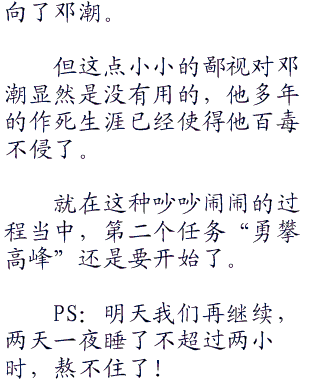 向了邓潮。
但这点小小的鄙视对邓
潮显然是没有用的，他多年
的作死生涯已经使得他百毒
不侵了。
就在这种吵吵闹闹的过
程当中，第二个任务“勇攀
高峰”还是要开始了。
PS：明天我们再继续，
两天一夜睡了不超过两小
时，熬不住了！